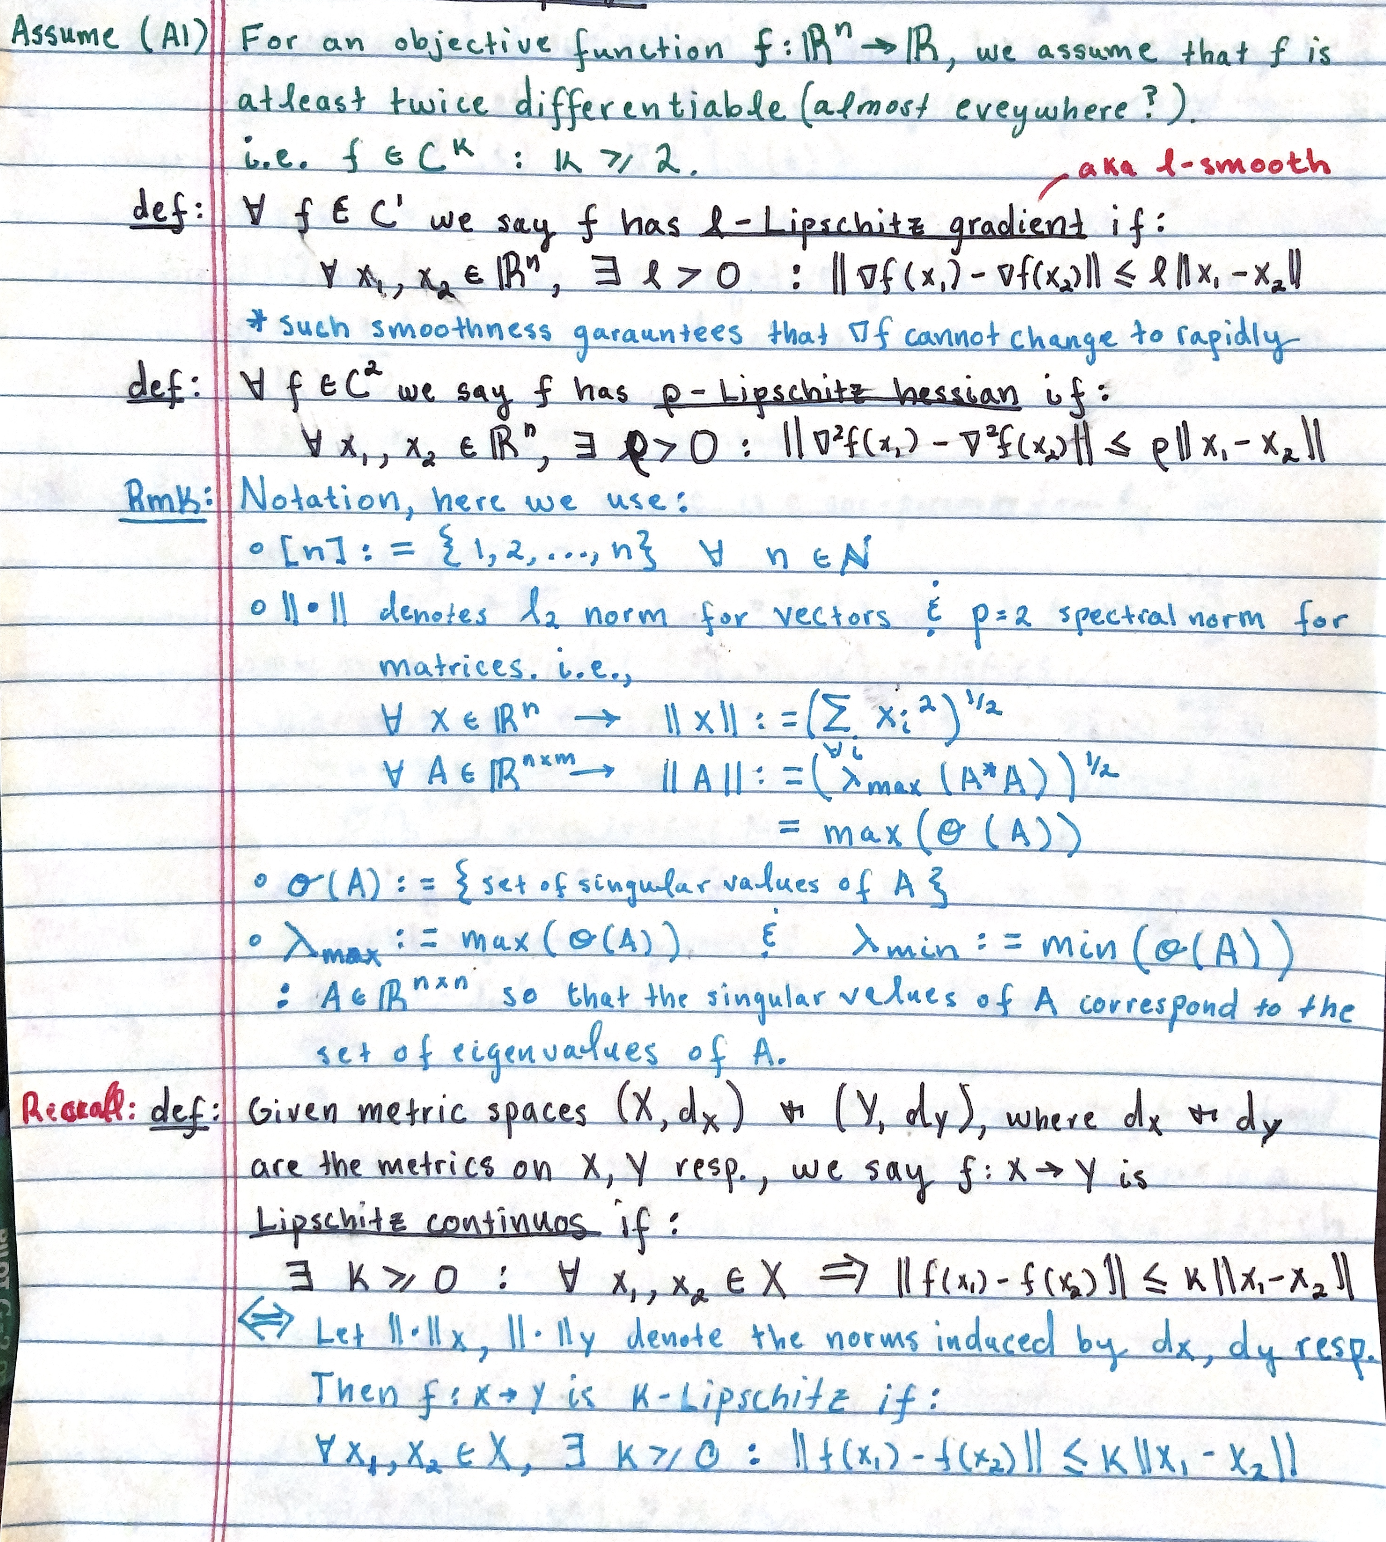 Assume (A1) For an objective function f: ℝⁿ → ℝ, we assume that f is
atleast twice differentiable (almost eveywhere?).
i.e. f ∈ Cᴷ : K ⩾ 2.
aka ℓ-smooth
def: ∀ f ∈ C¹ we say f has ℓ-Lipschitz gradient if:
∀ x₁, x₂ ∈ ℝⁿ, ∃ ℓ > 0 : ||∇f(x₁) - ∇f(x₂)|| ≤ ℓ||x₁ - x₂||
* such smoothness garauntees that ∇f cannot change to rapidly
def: ∀ f ∈ C² we say f has ρ-Lipschitz hessian if:
∀ x₁, x₂ ∈ ℝⁿ, ∃ ρ > 0 : ||∇²f(x₁) - ∇²f(x₂)|| ≤ ρ||x₁ - x₂||
Rmk: Notation, here we use:
∘ [n] := {1, 2, ..., n} ∀ n ∈ ℕ
∘ ||•|| denotes l₂ norm for vectors & p=2 spectral norm for
matrices. i.e.,
∀ x ∈ ℝⁿ → ||x|| := (∑_{∀i} xᵢ²)^{1/2}
∀ A ∈ ℝⁿˣᵐ → ||A|| := (λmax (A*A))^{1/2}
= max(σ(A))
∘ σ(A) := {set of singular values of A}
∘ λmax := max(σ(A)) & λmin := min(σ(A))
: A ∈ ℝⁿˣⁿ so that the singular values of A correspond to the
set of eigenvalues of A.
Recall: def: Given metric spaces (X, dx) + (Y, dy), where dx + dy
are the metrics on X, Y resp., we say f: X → Y is
Lipschitz continuos if:
∃ K ⩾ 0 : ∀ x₁, x₂ ∈ X ⇒ ||f(x₁) - f(x₂)|| ≤ K||x₁ - x₂||
⇔ Let ||•||x, ||•||y denote the norms induced by dx, dy resp.
Then f: X → Y is K-Lipschitz if:
∀ x₁, x₂ ∈ X, ∃ K ⩾ 0 : ||f(x₁) - f(x₂)|| ≤ K||x₁ - x₂||